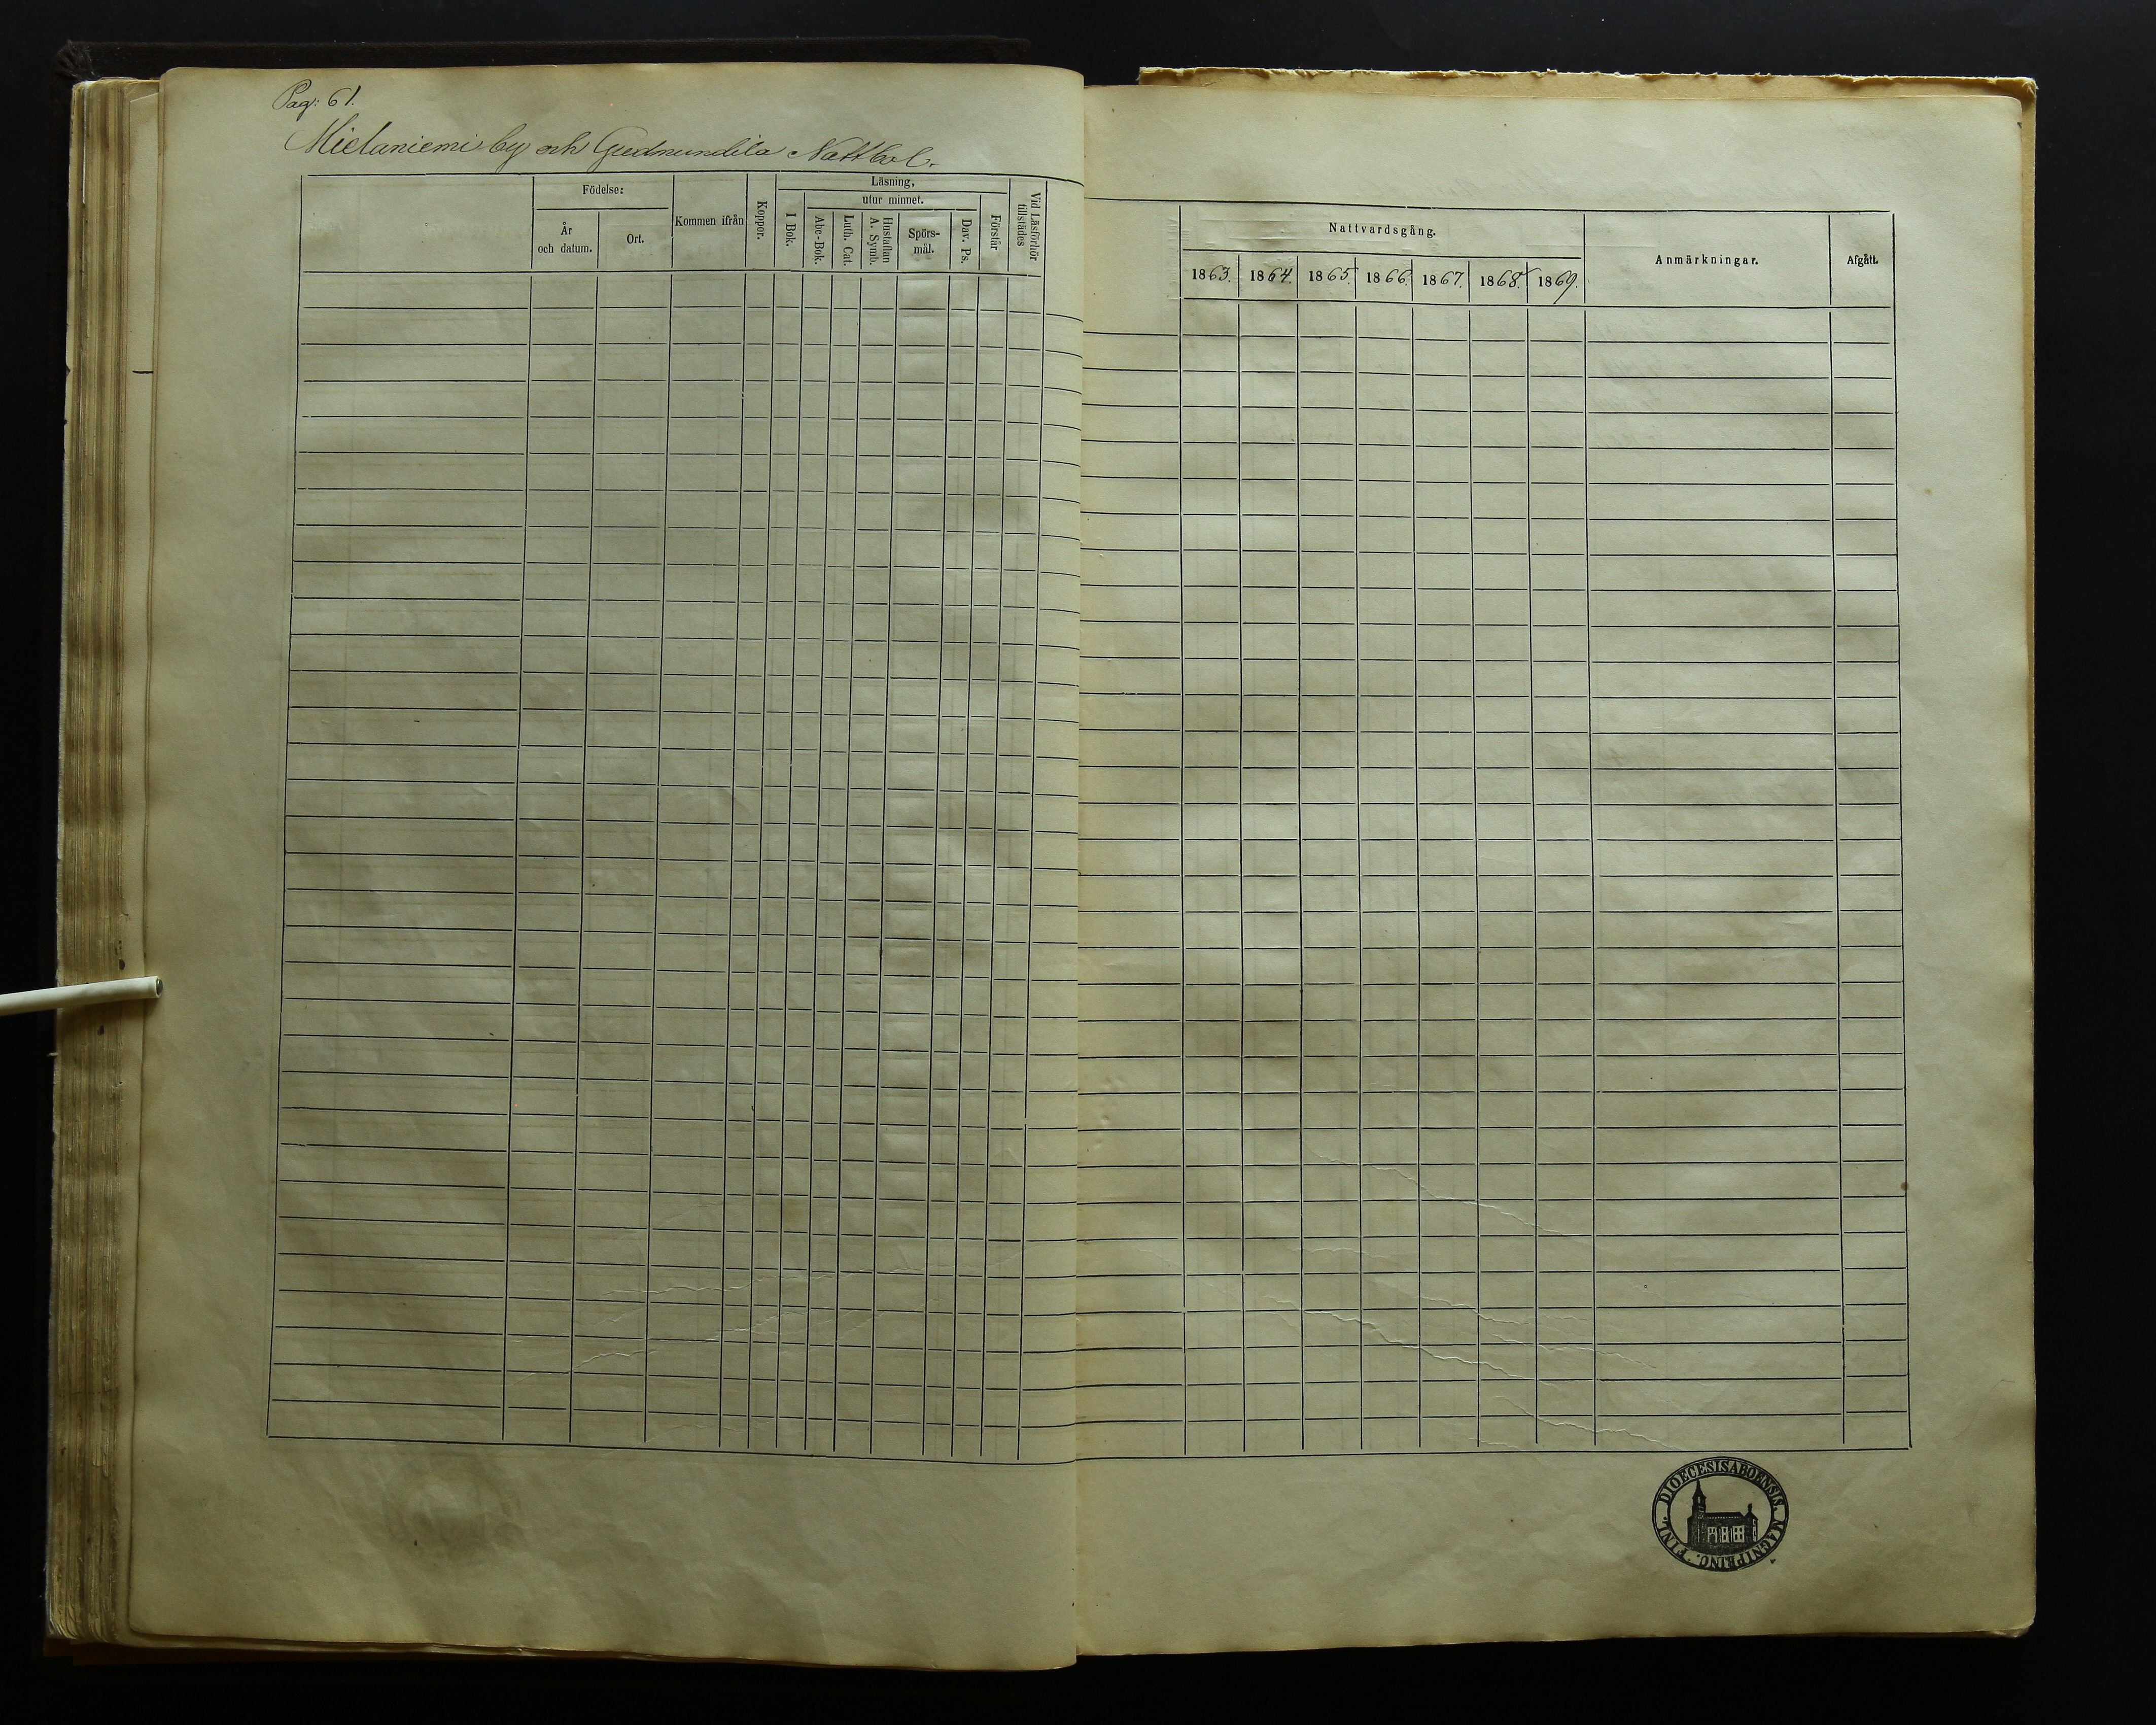 Pag: 61.
Mielaniemi by och Gudmundila Nattbol.
Födelse:
År och datum.
Ort.
Kommen ifrån
Koppor.
Läsning,
utur minnet.
I Bok.
Abc-Bok.
Luth. Cat.
Hustaflan A. Symb.
Spörs-
mål.
Dav. Ps.
Förstår
Vid Läsförhör tillstädes
Nattvardsgång.
1863. 1864. 1865. 1866. 1867. 1868. 1869.
Anmärkningar.
Afgått.
DIOECESIS ABOENSIS. MAGNI PRINC. FINL.